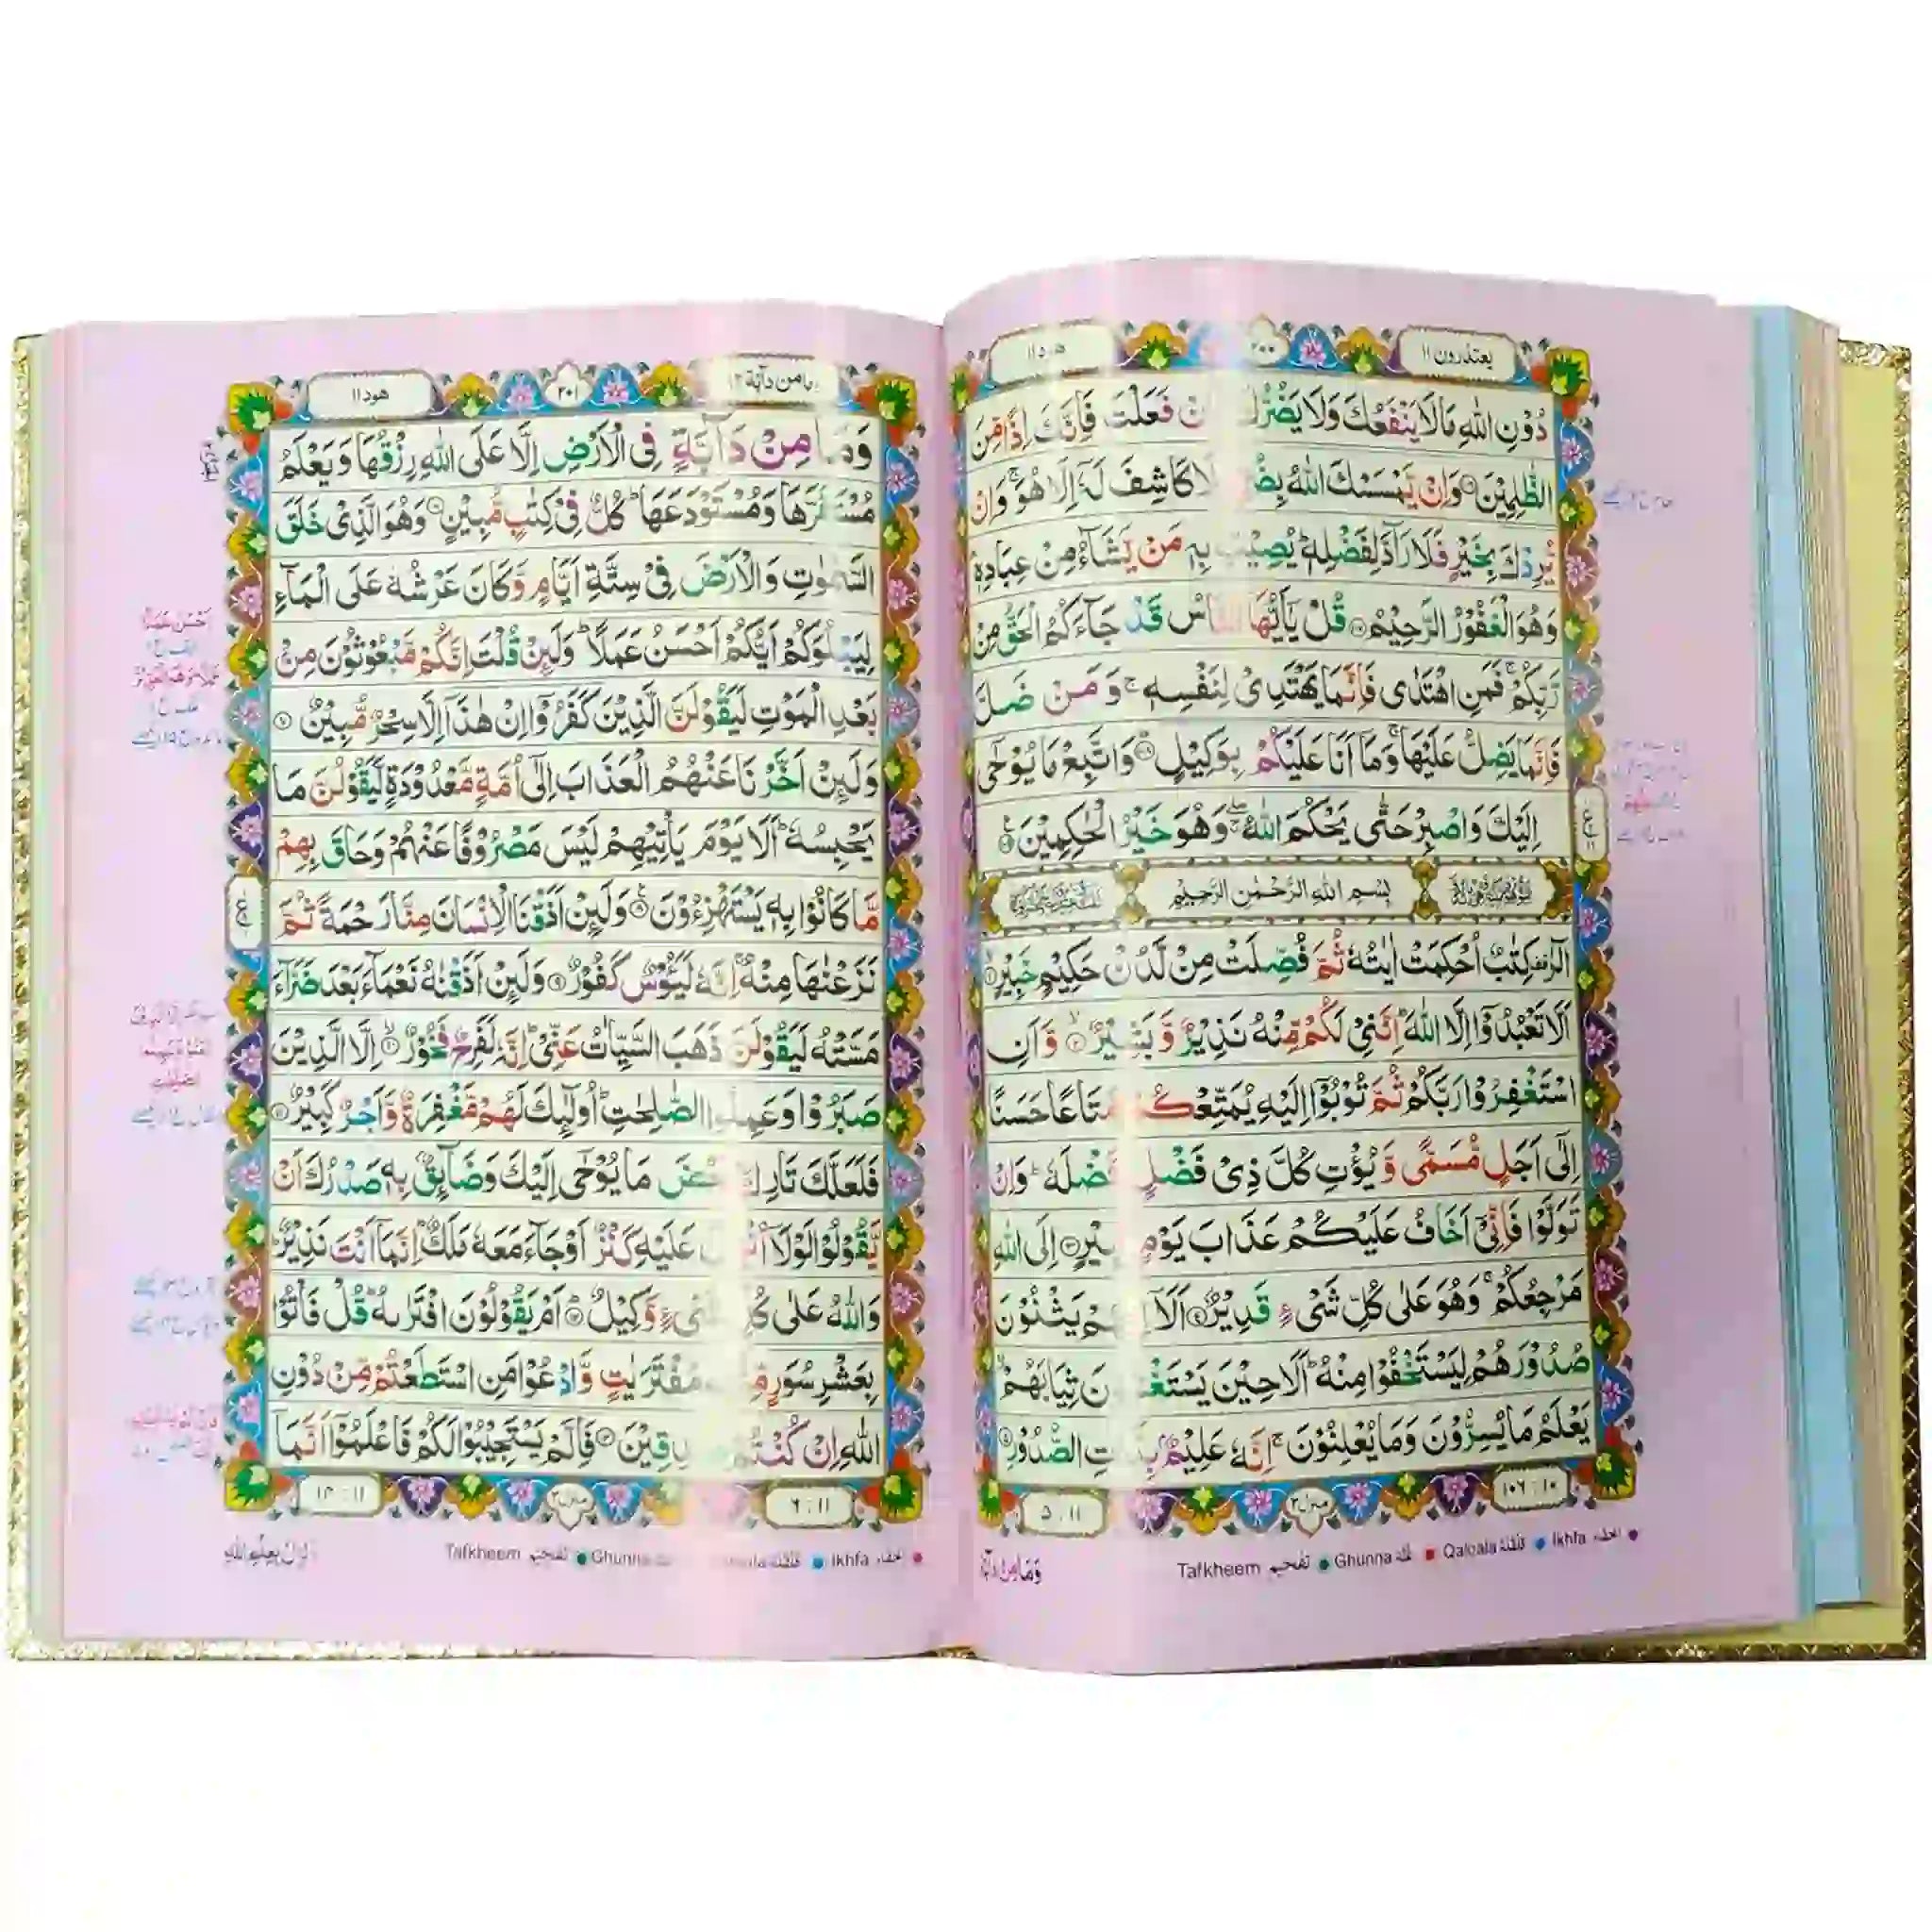 يعتذرون ١١
٢٠٠
هود ١١
دُوْنِ اللّٰهِ مَا لَا يَنْفَعُكَ وَلَا يَضُرُّكَ فَعَلْتَ فَاِنَّكَ اِذًا مِّنَ
الظّٰلِمِيْنَ ۝۱۰۶ وَاِنْ يَّمْسَسْكَ اللّٰهُ بِضُرٍّ فَلَا كَاشِفَ لَهٗۤ اِلَّا هُوَ ۚ وَاِنْ
يُّرِدْكَ بِخَيْرٍ فَلَا رَآدَّ لِفَضْلِهٖ ؕ يُصِيْبُ بِهٖ مَنْ يَّشَآءُ مِنْ عِبَادِهٖ ؕ
وَهُوَ الْغَفُوْرُ الرَّحِيْمُ ۝۱۰۷ قُلْ يٰۤاَيُّهَا النَّاسُ قَدْ جَآءَكُمُ الْحَقُّ مِنْ
رَّبِّكُمْ ۚ فَمَنِ اهْتَدٰى فَاِنَّمَا يَهْتَدِيْ لِنَفْسِهٖ ۚ وَمَنْ ضَلَّ
فَاِنَّمَا يَضِلُّ عَلَيْهَا ۚ وَمَاۤ اَنَا عَلَيْكُمْ بِوَكِيْلٍ ۝۱۰۸ وَاتَّبِعْ مَا يُوْحٰۤى
اِلَيْكَ وَاصْبِرْ حَتّٰى يَحْكُمَ اللّٰهُ ۚ وَهُوَ خَيْرُ الْحٰكِمِيْنَ ۝۱۰۹
بِسْمِ اللّٰهِ الرَّحْمٰنِ الرَّحِيْمِ
الٓرٰ ۫ كِتٰبٌ اُحْكِمَتْ اٰيٰتُهٗ ثُمَّ فُصِّلَتْ مِنْ لَّدُنْ حَكِيْمٍ خَبِيْرٍ ۝۱
اَلَّا تَعْبُدُوْۤا اِلَّا اللّٰهَ ؕ اِنَّنِيْ لَكُمْ مِّنْهُ نَذِيْرٌ وَّبَشِيْرٌ ۝۲ وَّاَنِ
اسْتَغْفِرُوْا رَبَّكُمْ ثُمَّ تُوْبُوْۤا اِلَيْهِ يُمَتِّعْكُمْ مَّتَاعًا حَسَنًا
اِلٰۤى اَجَلٍ مُّسَمًّى وَّيُؤْتِ كُلَّ ذِيْ فَضْلٍ فَضْلَهٗ ؕ وَاِنْ
تَوَلَّوْا فَاِنِّيْۤ اَخَافُ عَلَيْكُمْ عَذَابَ يَوْمٍ كَبِيْرٍ ۝۳ اِلَى اللّٰهِ
مَرْجِعُكُمْ ۚ وَهُوَ عَلٰى كُلِّ شَيْءٍ قَدِيْرٌ ۝۴ اَلَاۤ اِنَّهُمْ يَثْنُوْنَ
صُدُوْرَهُمْ لِيَسْتَخْفُوْا مِنْهُ ؕ اَلَا حِيْنَ يَسْتَغْشُوْنَ ثِيَابَهُمْ ۙ
يَعْلَمُ مَا يُسِرُّوْنَ وَمَا يُعْلِنُوْنَ ۚ اِنَّهٗ عَلِيْمٌۢ بِذَاتِ الصُّدُوْرِ ۝۵
١٠٦ : ١٠
منزل ٣
٥ : ١١
اخفاء Ikhfa قلقلة Qalqala غنّة Ghunna تفخيم Tafkheem
وَمَا مِنْ دَآبَّةٍ
وما من دآبة ١٢
٢٠١
هود ١١
وَمَا مِنْ دَآبَّةٍ فِي الْاَرْضِ اِلَّا عَلَى اللّٰهِ رِزْقُهَا وَيَعْلَمُ
مُسْتَقَرَّهَا وَمُسْتَوْدَعَهَا ؕ كُلٌّ فِيْ كِتٰبٍ مُّبِيْنٍ ۝۶ وَهُوَ الَّذِيْ خَلَقَ
السَّمٰوٰتِ وَالْاَرْضَ فِيْ سِتَّةِ اَيَّامٍ وَّكَانَ عَرْشُهٗ عَلَى الْمَآءِ
لِيَبْلُوَكُمْ اَيُّكُمْ اَحْسَنُ عَمَلًا ؕ وَلَئِنْ قُلْتَ اِنَّكُمْ مَّبْعُوْثُوْنَ مِنْۢ
بَعْدِ الْمَوْتِ لَيَقُوْلَنَّ الَّذِيْنَ كَفَرُوْۤا اِنْ هٰذَاۤ اِلَّا سِحْرٌ مُّبِيْنٌ ۝۷
وَلَئِنْ اَخَّرْنَا عَنْهُمُ الْعَذَابَ اِلٰۤى اُمَّةٍ مَّعْدُوْدَةٍ لَّيَقُوْلُنَّ مَا
يَحْبِسُهٗ ؕ اَلَا يَوْمَ يَاْتِيْهِمْ لَيْسَ مَصْرُوْفًا عَنْهُمْ وَحَاقَ بِهِمْ
مَّا كَانُوْا بِهٖ يَسْتَهْزِءُوْنَ ۝۸ وَلَئِنْ اَذَقْنَا الْاِنْسَانَ مِنَّا رَحْمَةً ثُمَّ
نَزَعْنٰهَا مِنْهُ ۚ اِنَّهٗ لَيَـُٔوْسٌ كَفُوْرٌ ۝۹ وَلَئِنْ اَذَقْنٰهُ نَعْمَآءَ بَعْدَ ضَرَّآءَ
مَسَّتْهُ لَيَقُوْلَنَّ ذَهَبَ السَّيِّاٰتُ عَنِّيْ ؕ اِنَّهٗ لَفَرِحٌ فَخُوْرٌ ۝۱۰ اِلَّا الَّذِيْنَ
صَبَرُوْا وَعَمِلُوا الصّٰلِحٰتِ ؕ اُولٰٓئِكَ لَهُمْ مَّغْفِرَةٌ وَّاَجْرٌ كَبِيْرٌ ۝۱۱
فَلَعَلَّكَ تَارِكٌۢ بَعْضَ مَا يُوْحٰۤى اِلَيْكَ وَضَآئِقٌۢ بِهٖ صَدْرُكَ اَنْ
يَّقُوْلُوْا لَوْلَاۤ اُنْزِلَ عَلَيْهِ كَنْزٌ اَوْ جَآءَ مَعَهٗ مَلَكٌ ؕ اِنَّمَاۤ اَنْتَ نَذِيْرٌ ؕ
وَاللّٰهُ عَلٰى كُلِّ شَيْءٍ وَّكِيْلٌ ۝۱۲ اَمْ يَقُوْلُوْنَ افْتَرٰىهُ ؕ قُلْ فَاْتُوْا
بِعَشْرِ سُوَرٍ مِّثْلِهٖ مُفْتَرَيٰتٍ وَّادْعُوْا مَنِ اسْتَطَعْتُمْ مِّنْ دُوْنِ
اللّٰهِ اِنْ كُنْتُمْ صٰدِقِيْنَ ۝۱۳ فَاِلَّمْ يَسْتَجِيْبُوْا لَكُمْ فَاعْلَمُوْۤا اَنَّمَاۤ
٦ : ١١
منزل ٣
١٤ : ١١
اخفاء Ikhfa قلقلة غنّة Ghunna تفخيم Tafkheem
اُنْزِلَ بِعِلْمِ اللّٰهِ